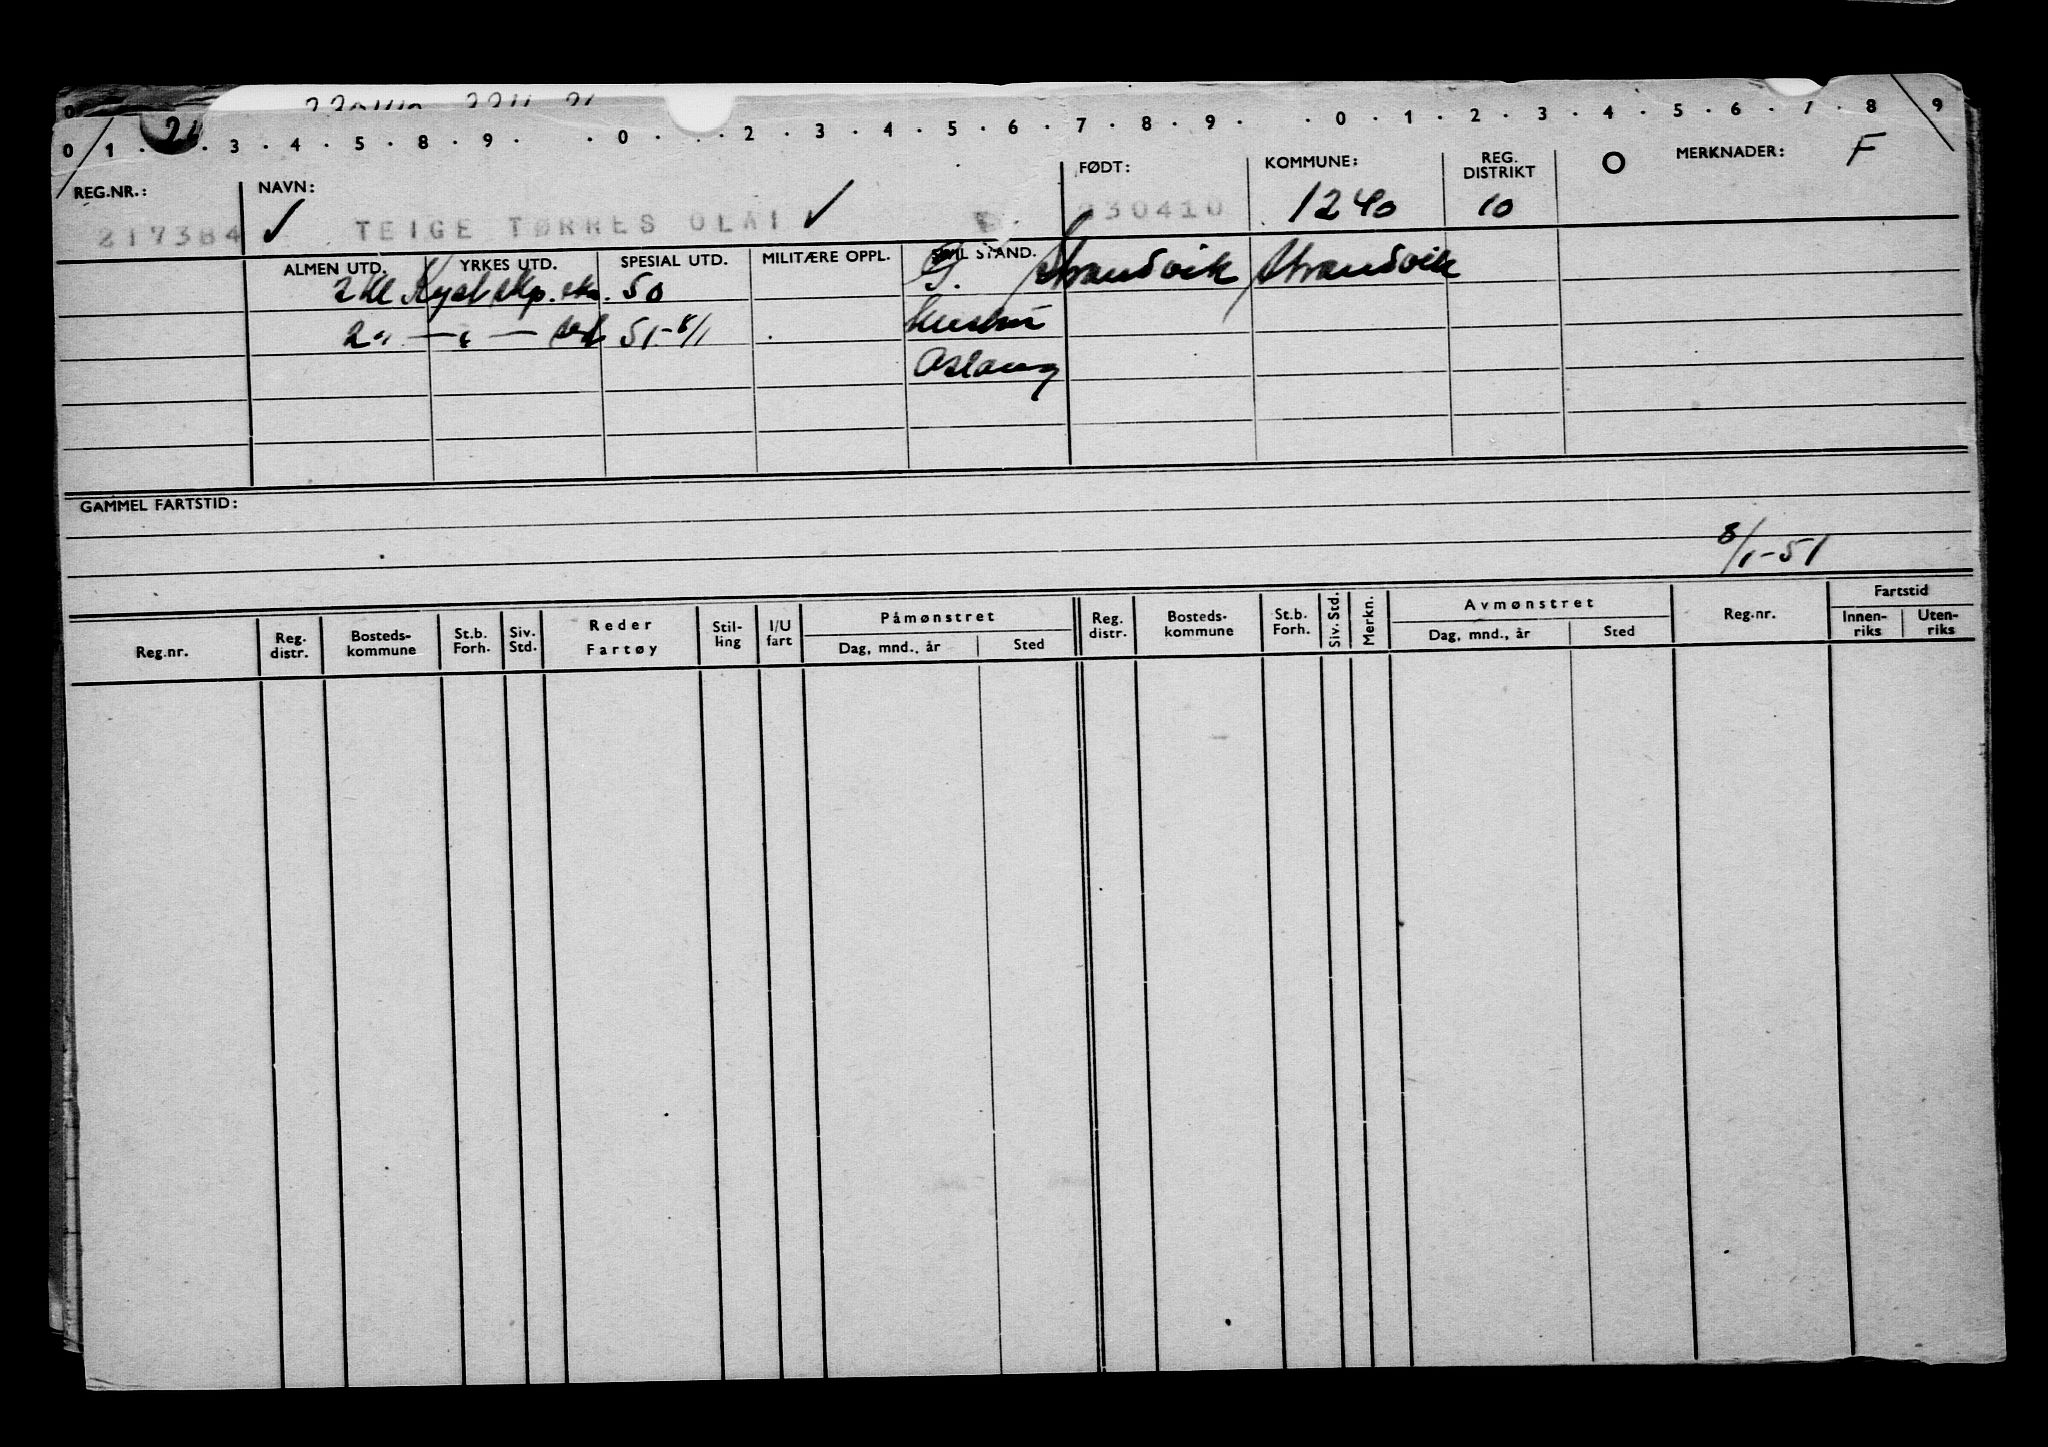 0 1 . . 3 . 4 . 5 . 8 . 9 . . 0 . . 2 . 3 . 4 . 5 . 6 . 7 . 8 . 9 . . 0 . 1 . 2 . 3 . 4 . 5 . 6 . 7 . 8 9
REG.NR.: NAVN: FØDT: KOMMUNE: REG. DISTRIKT O MERKNADER: F
217384 ✓ TEIGE TØRRES OLAI ✓ 230410 1240 10
ALMEN UTD. YRKES UTD. SPESIAL UTD. MILITÆRE OPPL. SIVIL STAND.
2 kl Kyst skp. eks. 50 G. Strandvik Strandvik
2 " — " — 51-8/1 hustru
Aslaug
GAMMEL FARTSTID:
8/1-51
Reg.nr. Reg. distr. Bosteds-kommune St.b. Forh. Siv. Std. Reder Fartøy Stil-ling I/U fart Påmønstret Dag, mnd., år Sted Reg. distr. Bosteds-kommune St.b. Forh. Siv. Std. Merkn. Avmønstret Dag, mnd., år Sted Reg.nr. Fartstid Innen-riks Uten-riks